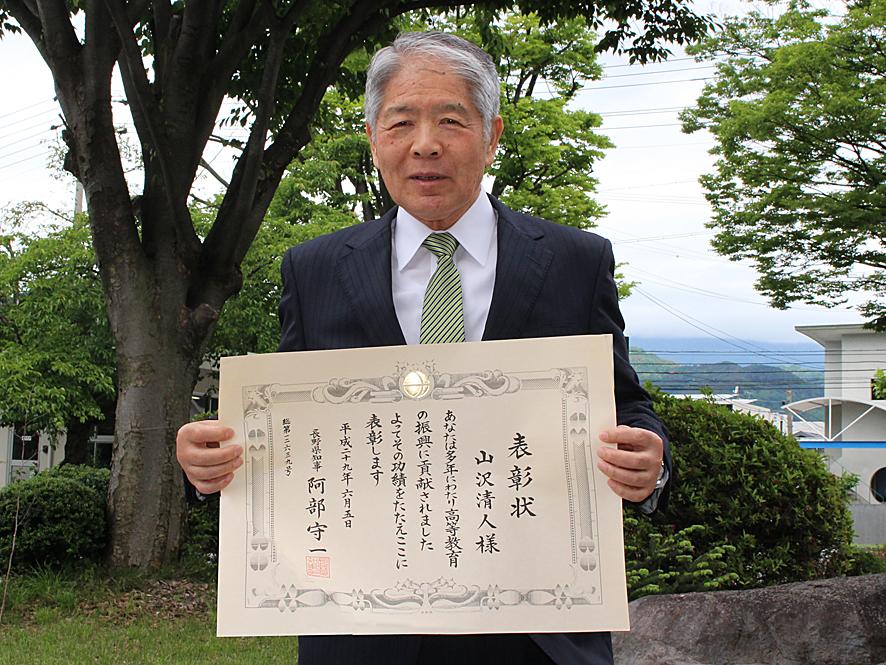 表彰状
山沢清人様
あなたは多年にわたり高等教育
の振興に貢献されました
よってその功績をたたえここに
表彰します
平成二十九年六月五日
長野県知事 阿部守一
総第一二六三九号